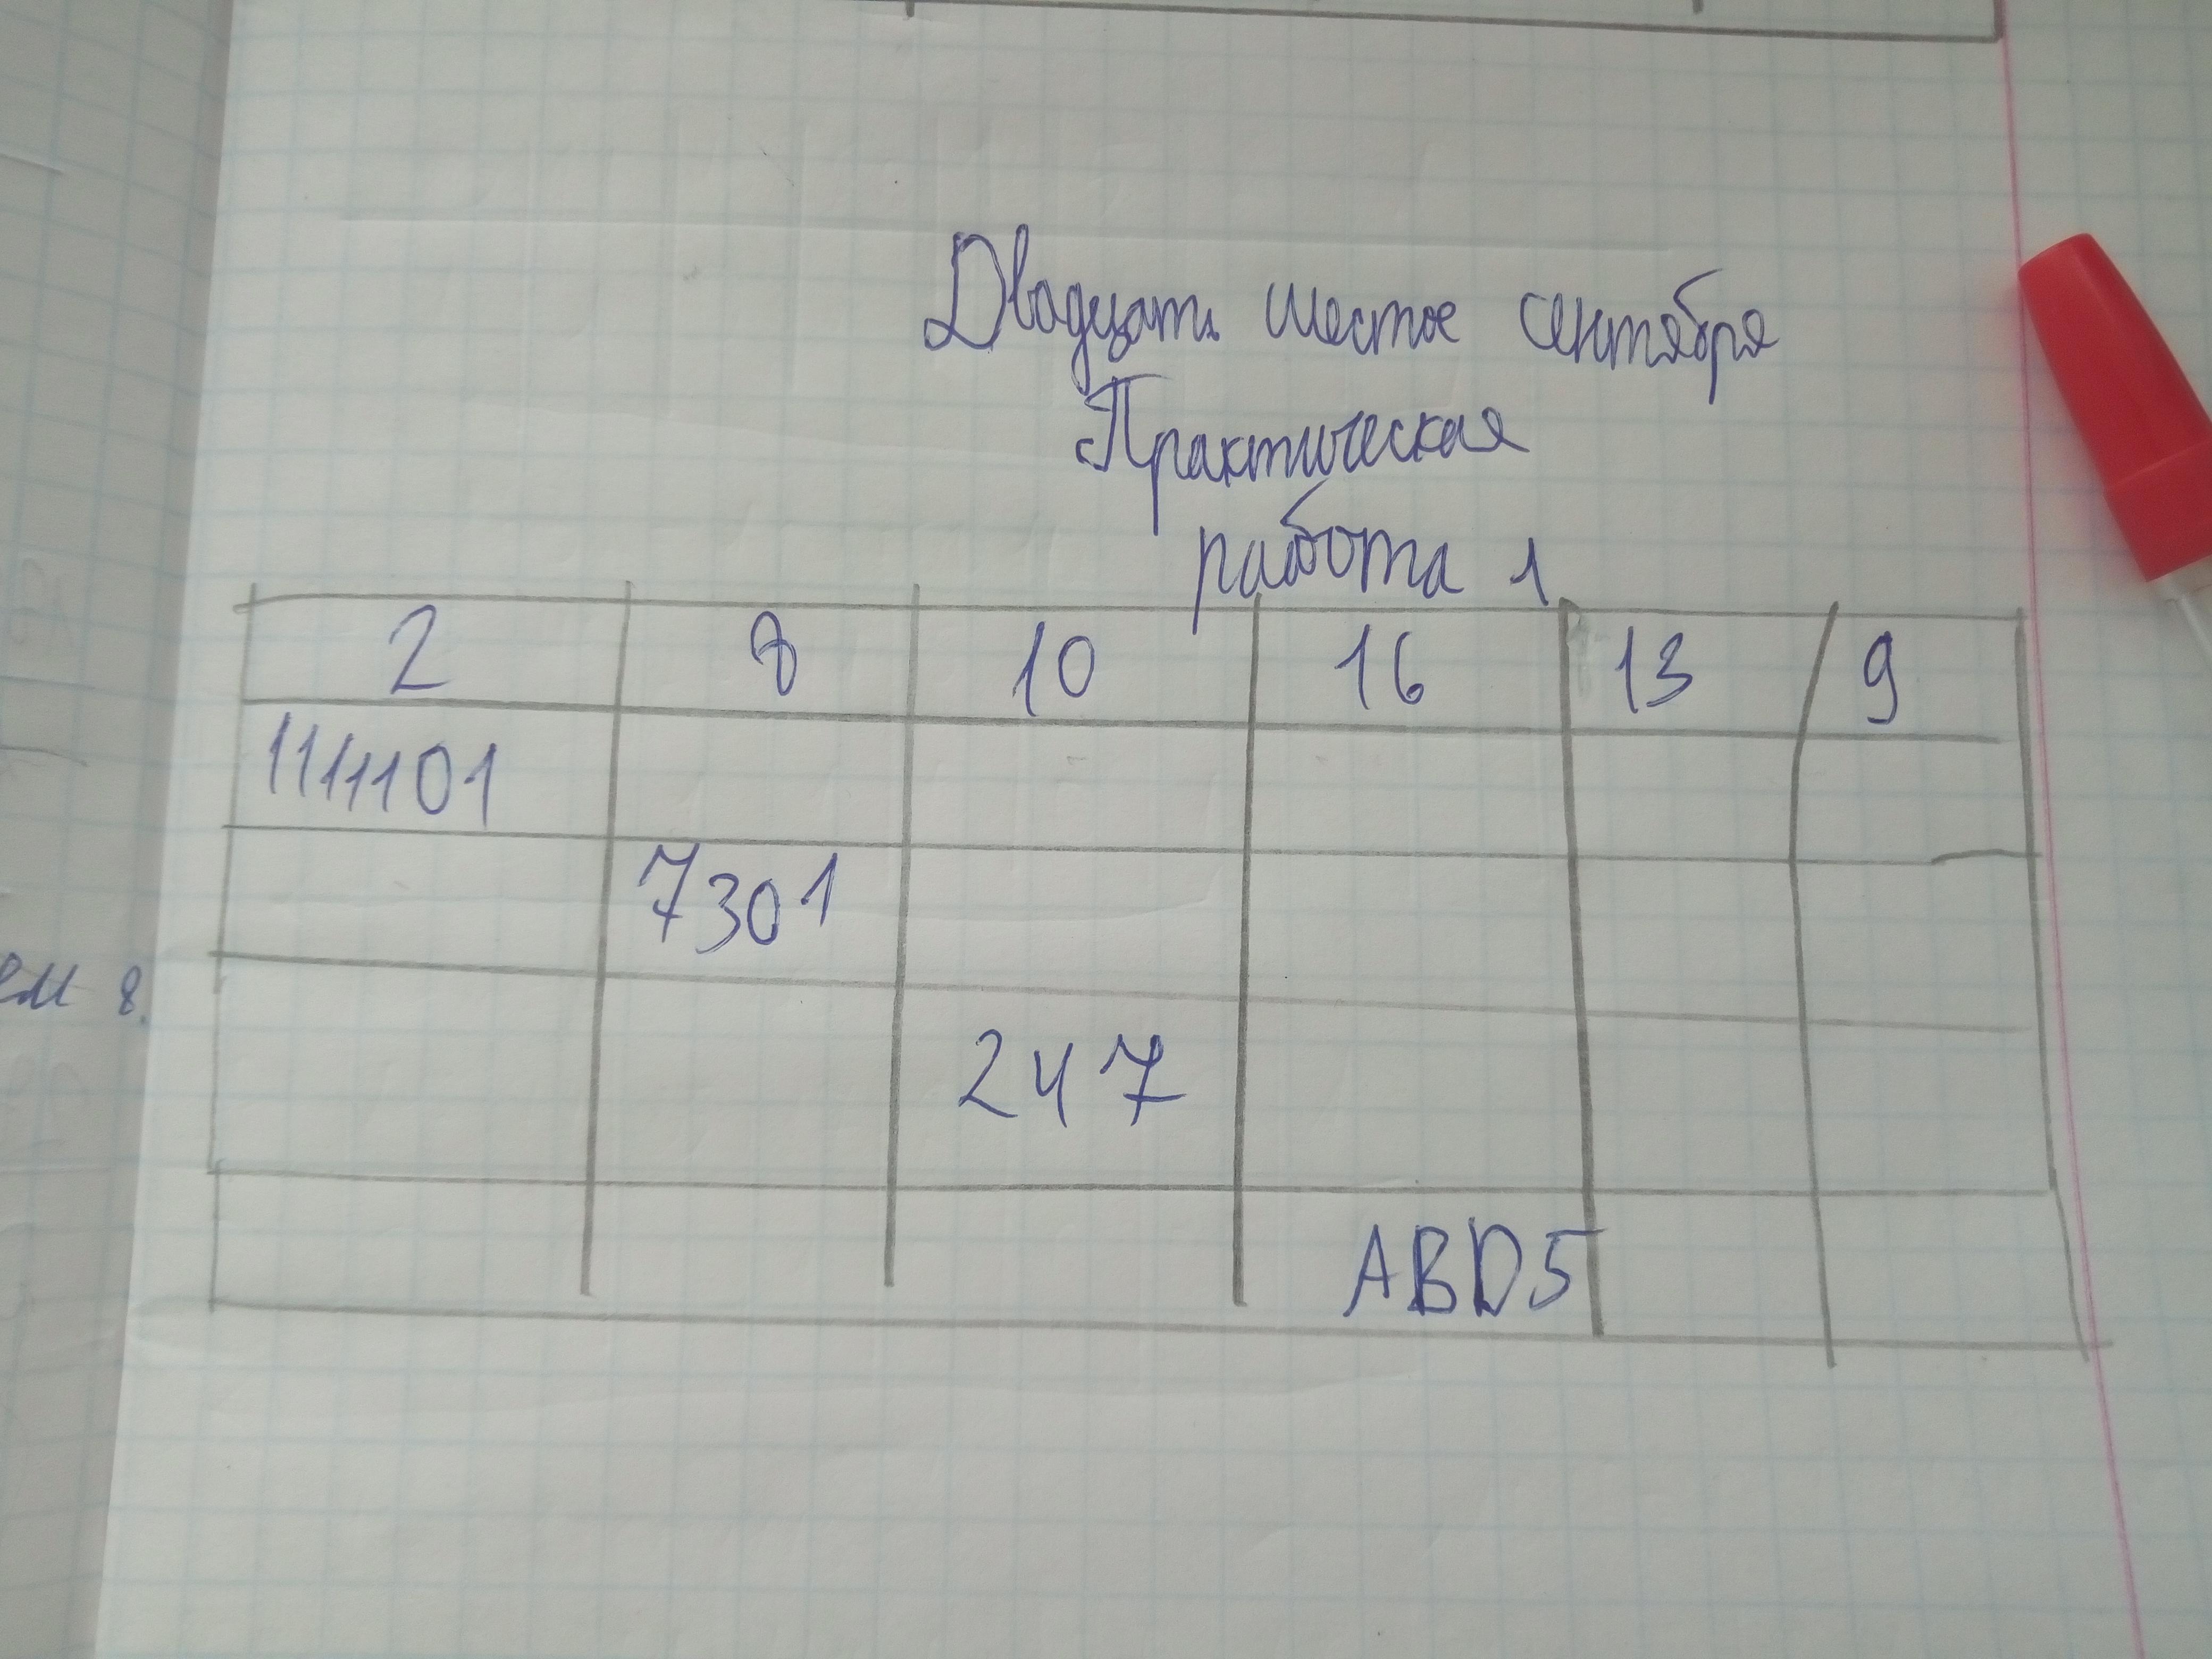 Двадцать шестое сентября
Практическая
работа 1
2 8 10 16 13 9
1111101
7301
ем 8.
247
ABD5